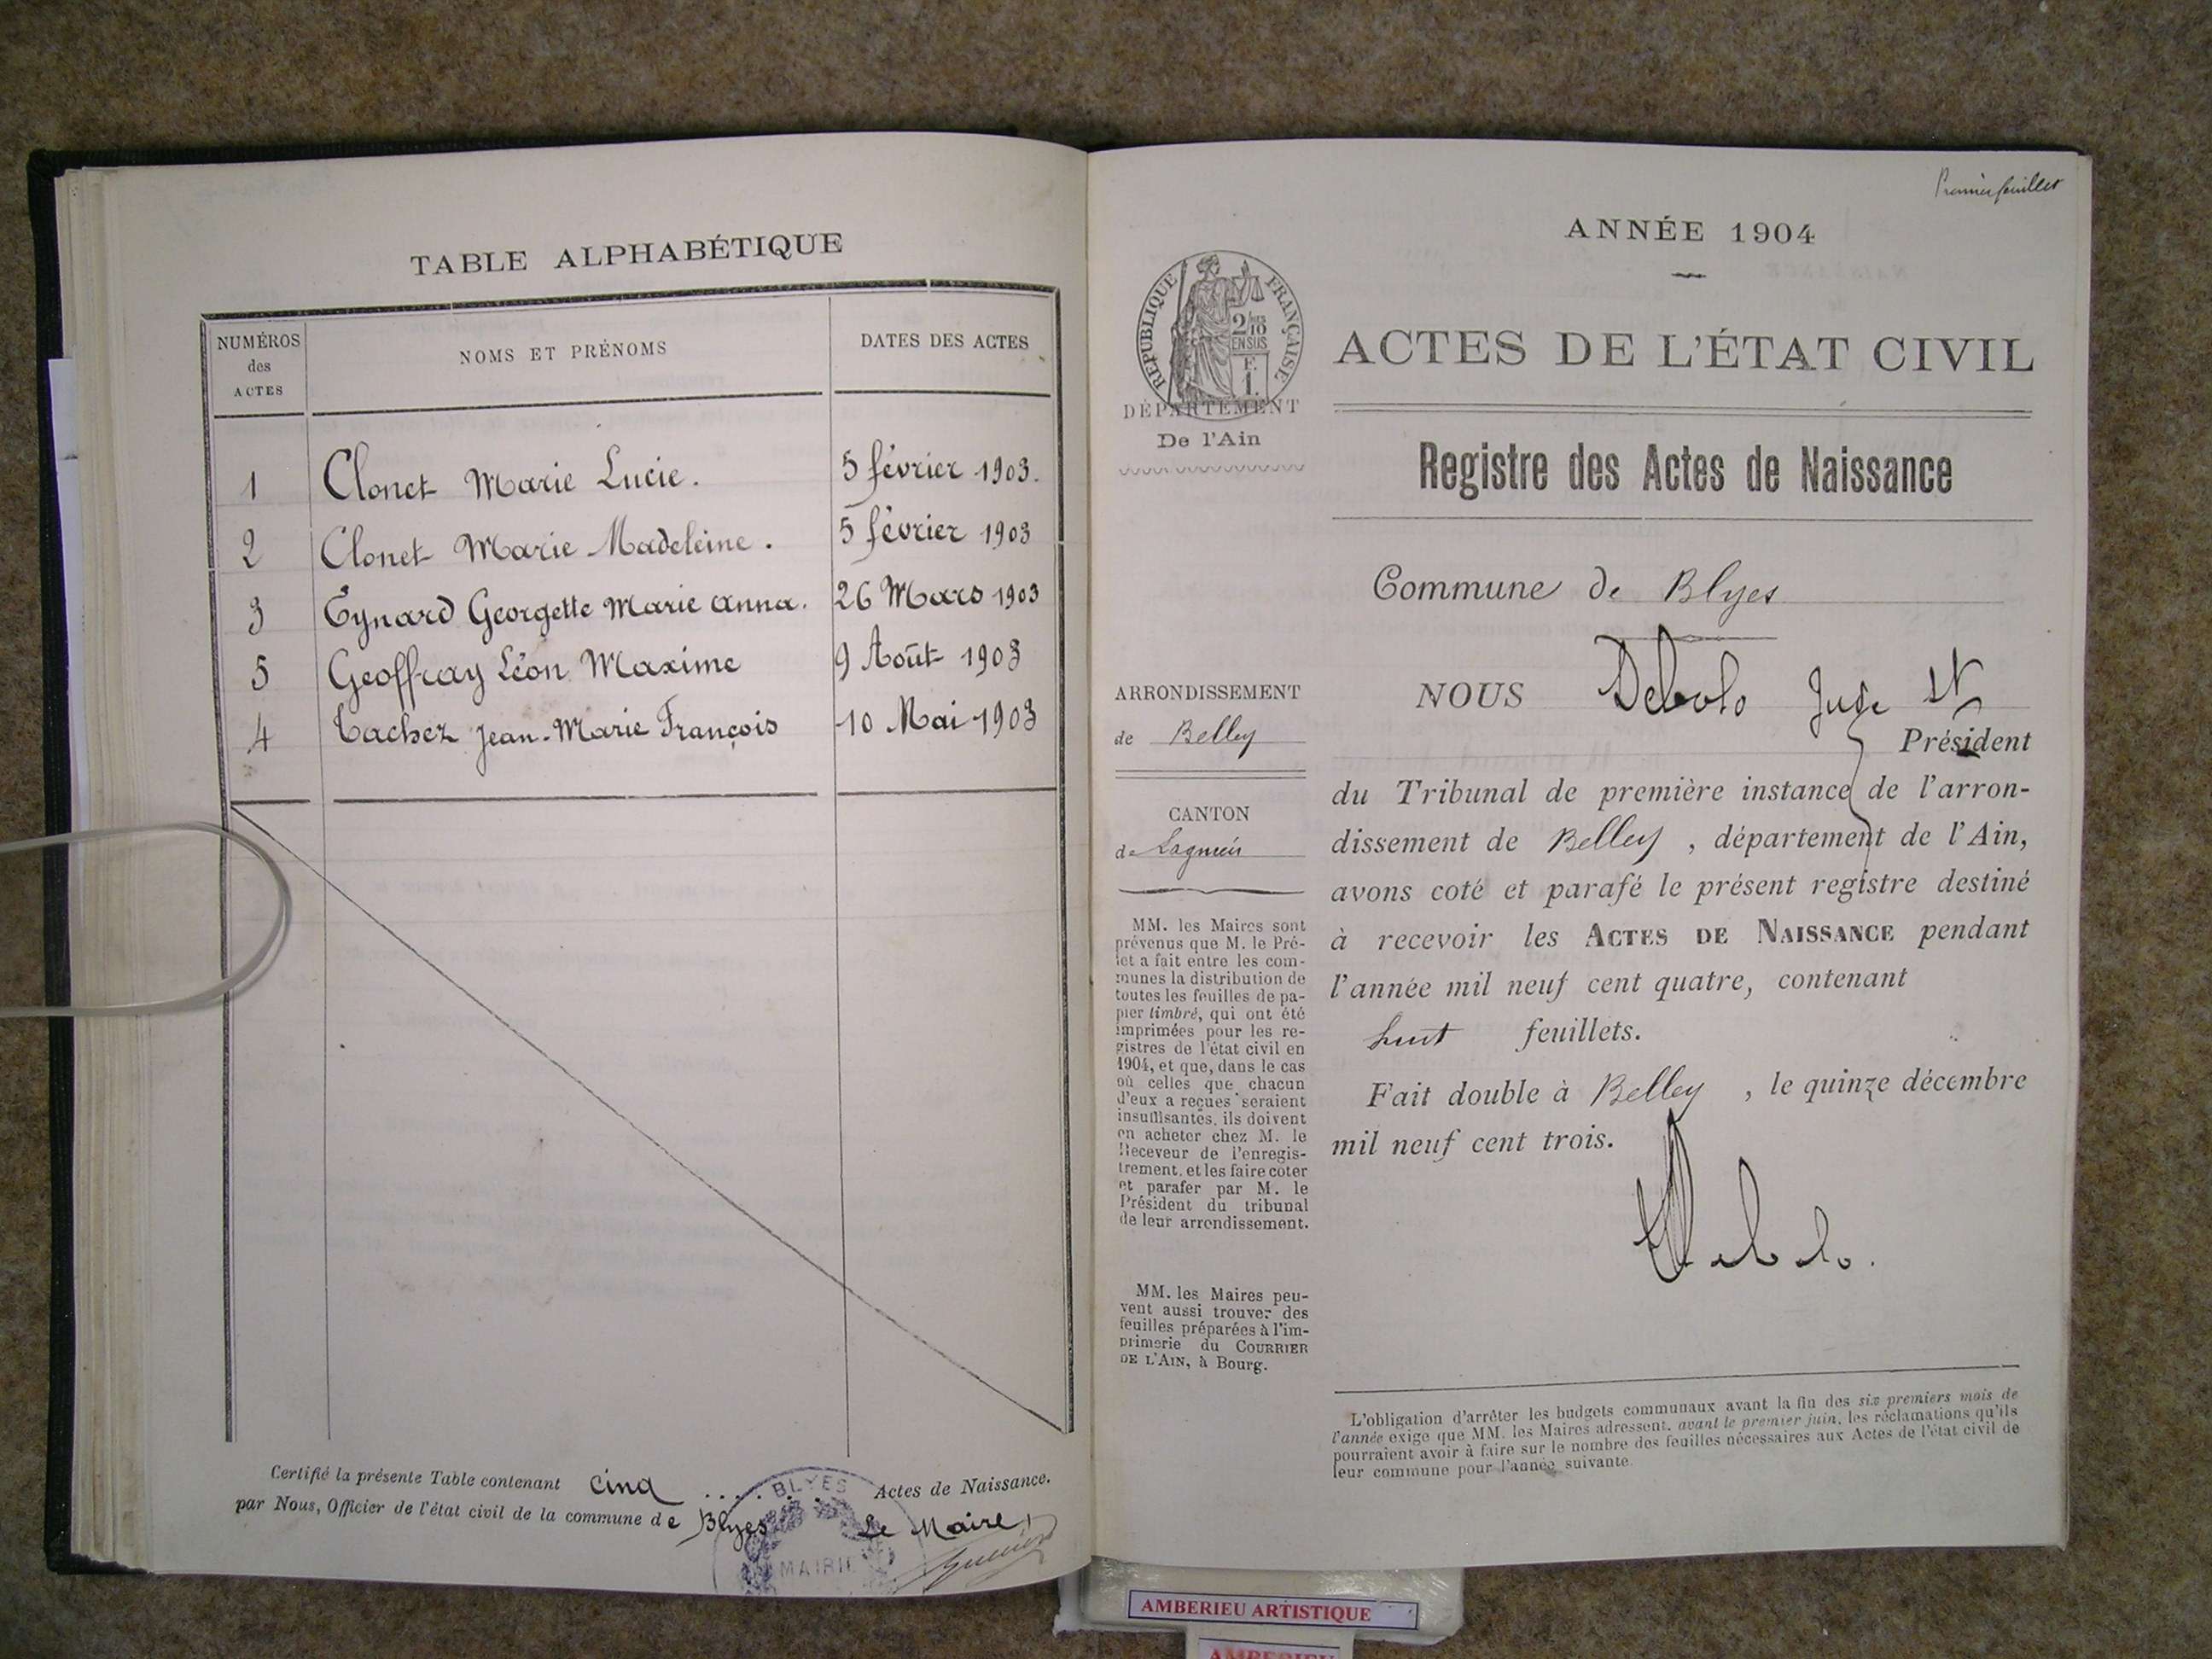 TABLE ALPHABÉTIQUE
NUMÉROS des ACTES NOMS ET PRÉNOMS DATES DES ACTES
1 Clonet Marie Lucie. 5 février 1903.
2 Clonet Marie Madeleine. 5 février 1903
3 Eynard Georgette Marie Anna. 26 Mars 1903
5 Geoffray Léon Maxime 9 Août 1903
4 Tachez Jean-Marie François 10 Mai 1903
Certifié la présente Table contenant cinq Actes de Naissance.
par Nous, Officier de l'état civil de la commune de Blyes Le Maire,
BLYES
MAIRIE
Premier feuillet
ANNÉE 1904
RÉPUBLIQUE FRANÇAISE
2/10
EN SUS
F.
1.
DÉPARTEMENT
De l'Ain
ARRONDISSEMENT
de Belley
CANTON
de Lagnieu
MM. les Maires sont
prévenus que M. le Pré-
fet a fait entre les com-
munes la distribution de
toutes les feuilles de pa-
pier timbré, qui ont été
imprimées pour les re-
gistres de l'état civil en
1904, et que, dans le cas
où celles que chacun
d'eux a reçues seraient
insuffisantes, ils doivent
en acheter chez M. le
Receveur de l'enregis-
trement, et les faire coter
et parafer par M. le
Président du tribunal
de leur arrondissement.
MM. les Maires peu-
vent aussi trouver des
feuilles préparées à l'im-
primerie du COURRIER
DE L'AIN, à Bourg.
ACTES DE L'ÉTAT CIVIL
Registre des Actes de Naissance
Commune de Blyes
NOUS Debolo Juge
Président
du Tribunal de première instance de l'arron-
dissement de Belley, département de l'Ain,
avons coté et parafé le présent registre destiné
à recevoir les ACTES DE NAISSANCE pendant
l'année mil neuf cent quatre, contenant
huit feuillets.
Fait double à Belley, le quinze décembre
mil neuf cent trois.
Debolo.
L'obligation d'arrêter les budgets communaux avant la fin des six premiers mois de
l'année exige que MM. les Maires adressent, avant le premier juin, les réclamations qu'ils
pourraient avoir à faire sur le nombre des feuilles nécessaires aux Actes de l'état civil de
leur commune pour l'année suivante.
AMBERIEU ARTISTIQUE
AMBERIEU